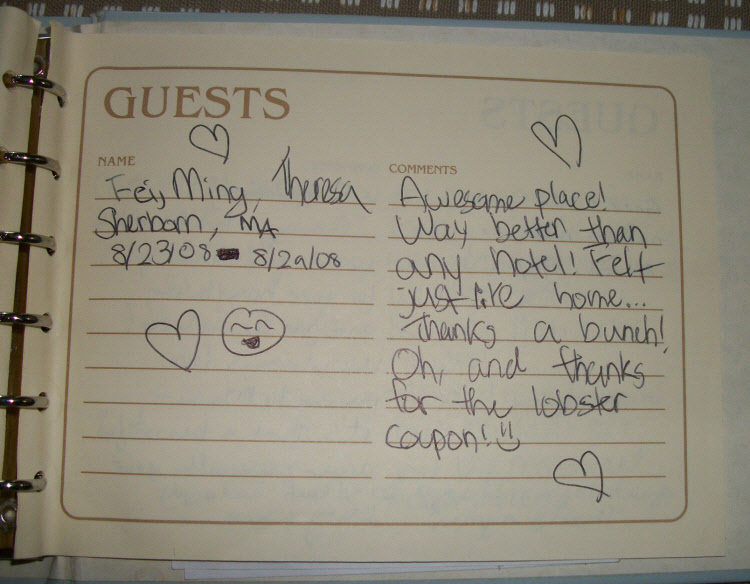 GUESTS
NAME
Fei, Ming, Theresa
Sherborn, MA
8/23/08 - 8/29/08
COMMENTS
Awesome place!
Way better than
any hotel! Felt
just like home...
Thanks a bunch!
Oh, and thanks
for the lobster
coupon!